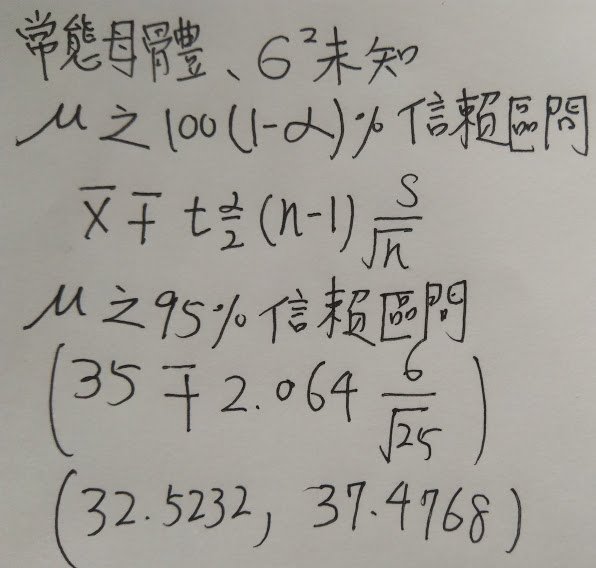 常態母體、σ²未知
μ之100(1-α)%信賴區間
X̄ ∓ t α/2 (n-1) S/√n
μ之95%信賴區間
(35 ∓ 2.064 6/√25)
(32.5232, 37.4768)